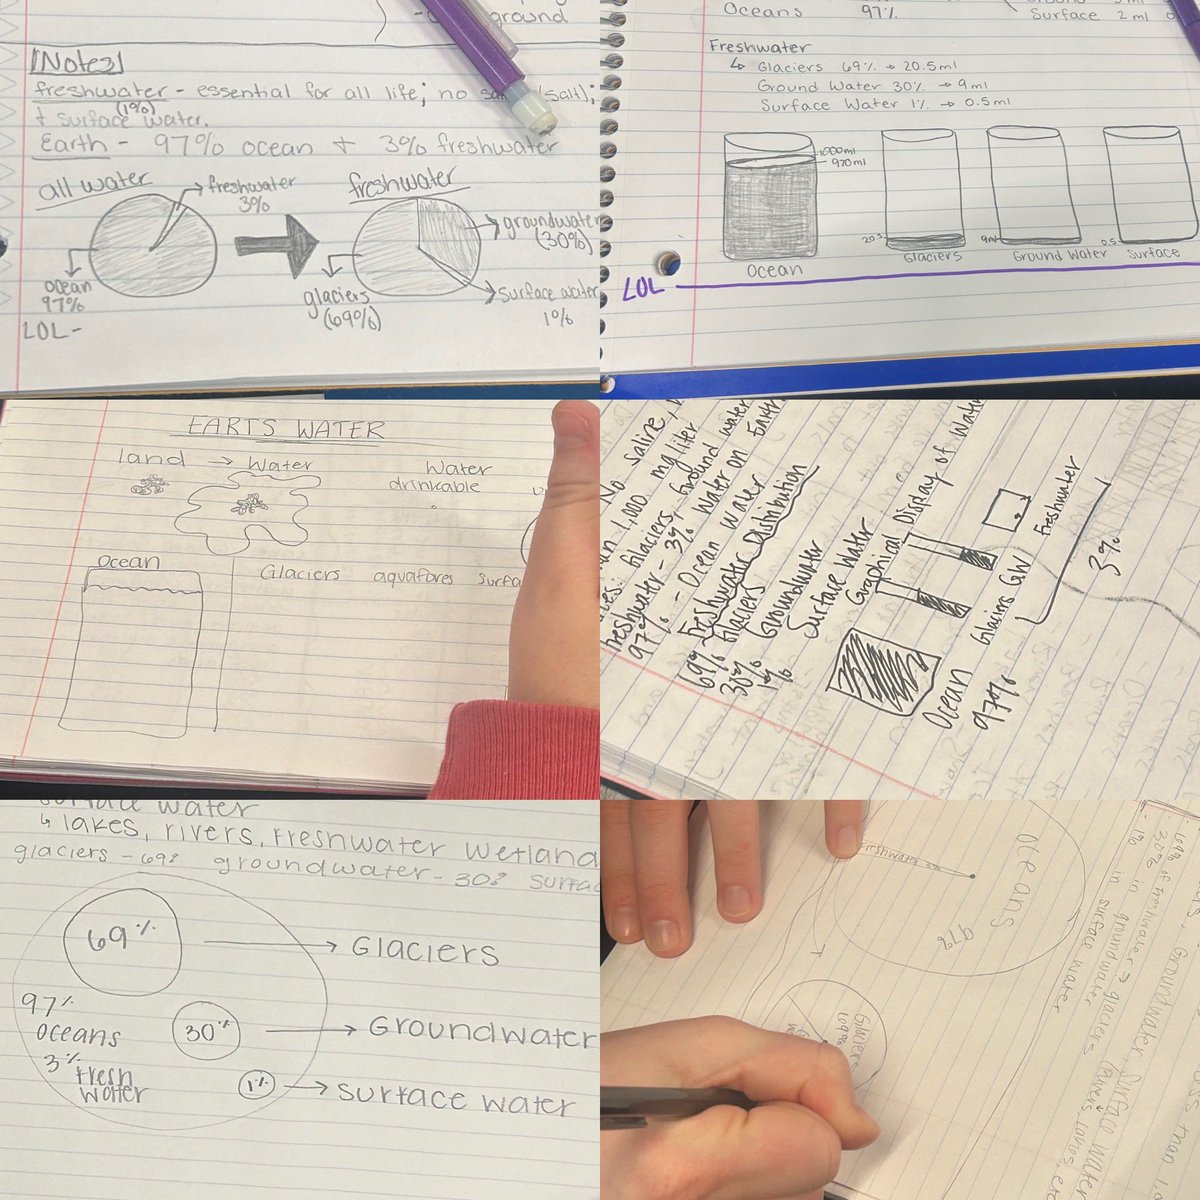 ground
Notes
freshwater - essential for all life; no (salt);
(1%)
+ surface water.
Earth - 97% ocean + 3% freshwater
all water
freshwater
3%
freshwater
groundwater
(30%)
ocean
97%
glaciers
(69%)
surface water
1%
LOL -
Oceans 97%
Surface 2ml
Freshwater
↳ Glaciers 69% → 20.5ml
Ground Water 30% → 9ml
Surface Water 1% → 0.5ml
1000ml
970ml
20.5
9ml
0.5
Ocean
Glaciers
Ground Water
Surface
LOL
EARTS WATER
land → Water
Water
drinkable
Ocean
Glaciers aquafores surfa
No saline,
1,000 mg/liter
Glaciers, Ground water
freshwater - 3% Water on Earth
97% - Ocean Water
Freshwater Distribution
69% Glaciers
30% Groundwater
1% Surface Water
Graphical Display of Water
Ocean
97%
Glaciers GW
Freshwater
3%
surface water
↳ lakes, rivers, freshwater wetland
glaciers - 69% groundwater - 30% surfa
69% → Glaciers
97%
oceans
30% → Groundwater
3% fresh
water
1% → surface water
Groundwater, Surface water
69% of freshwater → glaciers
30% in groundwater
1% in surface water
(Rivers, lakes,
Oceans
97%
Freshwater
Glaciers
69%